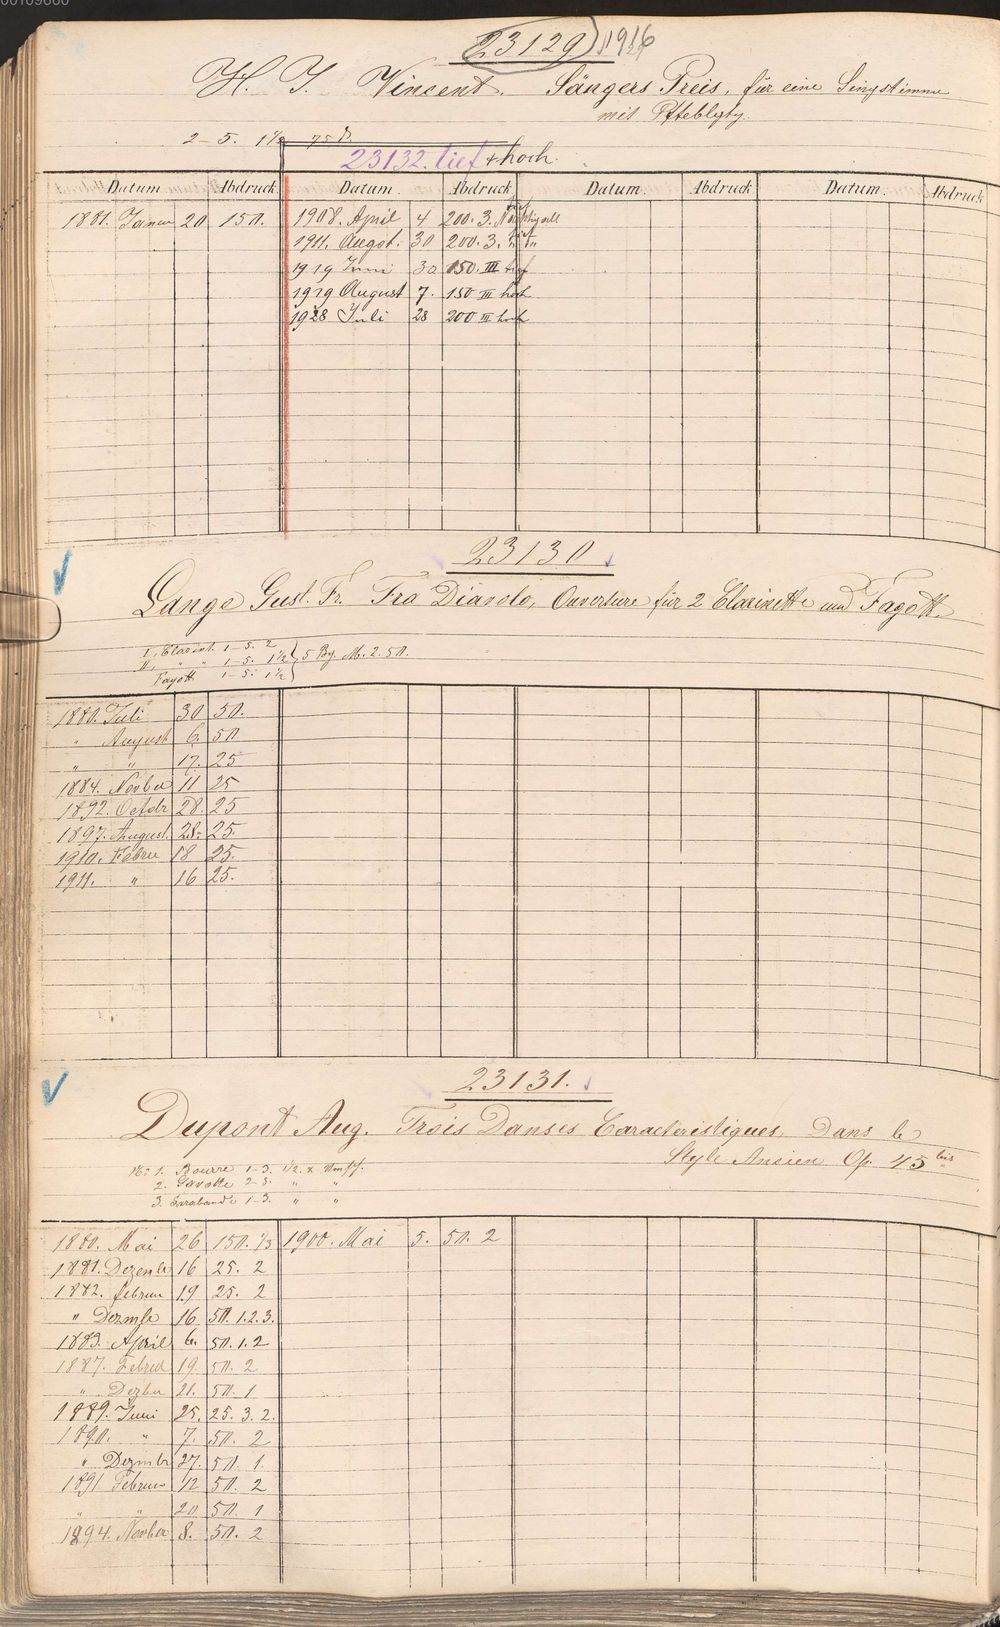 00109660
23129 1916
H. J. Vincent. Sängers Preis, für eine Singstimme
mit Pftebgltg.
2-5. 1½ 75 ₰.
23132. tief + hoch.
Datum Abdruck Datum. Abdruck Datum. Abdruck Datum. Abdruck
1881. Januar 20 150. 1908. April 4 200. 3. tief
1911. August. 30 200. 3. " "
1919 Juni 30 150. III tief
1919 August 7. 150 III hoch
1928 Juli 28 200 III hoch
23130
Lange Gust. Fr. Fra Diavolo, Ouverture für 2 Clarinette und Fagott.
I, Clarint. 1-5. 2
II, " " 1-5. 1½ 5 Bg. M. 2.50.
Fagott 1-5. 1½
1880. Juli 30 50.
" August 6. 50
" " 17. 25
1884. Novber 11 25
1892. Octobr 28. 25
1897. August. 28. 25.
1910. Febru 18 25.
1911. " 16 25.
23131.
Dupont Aug. Trois Danses Caractéristiques, Dans le
Style Ancien Op. 45 bis
No 1. Bourre 1-3. 1½ x
2. Gavotte 2-3. " "
3. Sarabande 1-3. " "
1880. Mai 26 150. 1/3 1900. Mai 5. 50. 2
1881. Dezembe 16 25. 2
1882. februa 19 25. 2
" Dezmbe 16 50. 1.2.3.
1883. April 6. 50. 1.2
1887. Februa 19. 50. 2
" Dezber 21. 50. 1
1889. Juni 25. 25. 3. 2.
1890. " 7. 50. 2
" Dezmbr 27. 50. 1.
1891 Februar 12 50. 2
" 20 50. 1
1894. Novber 8. 50. 2